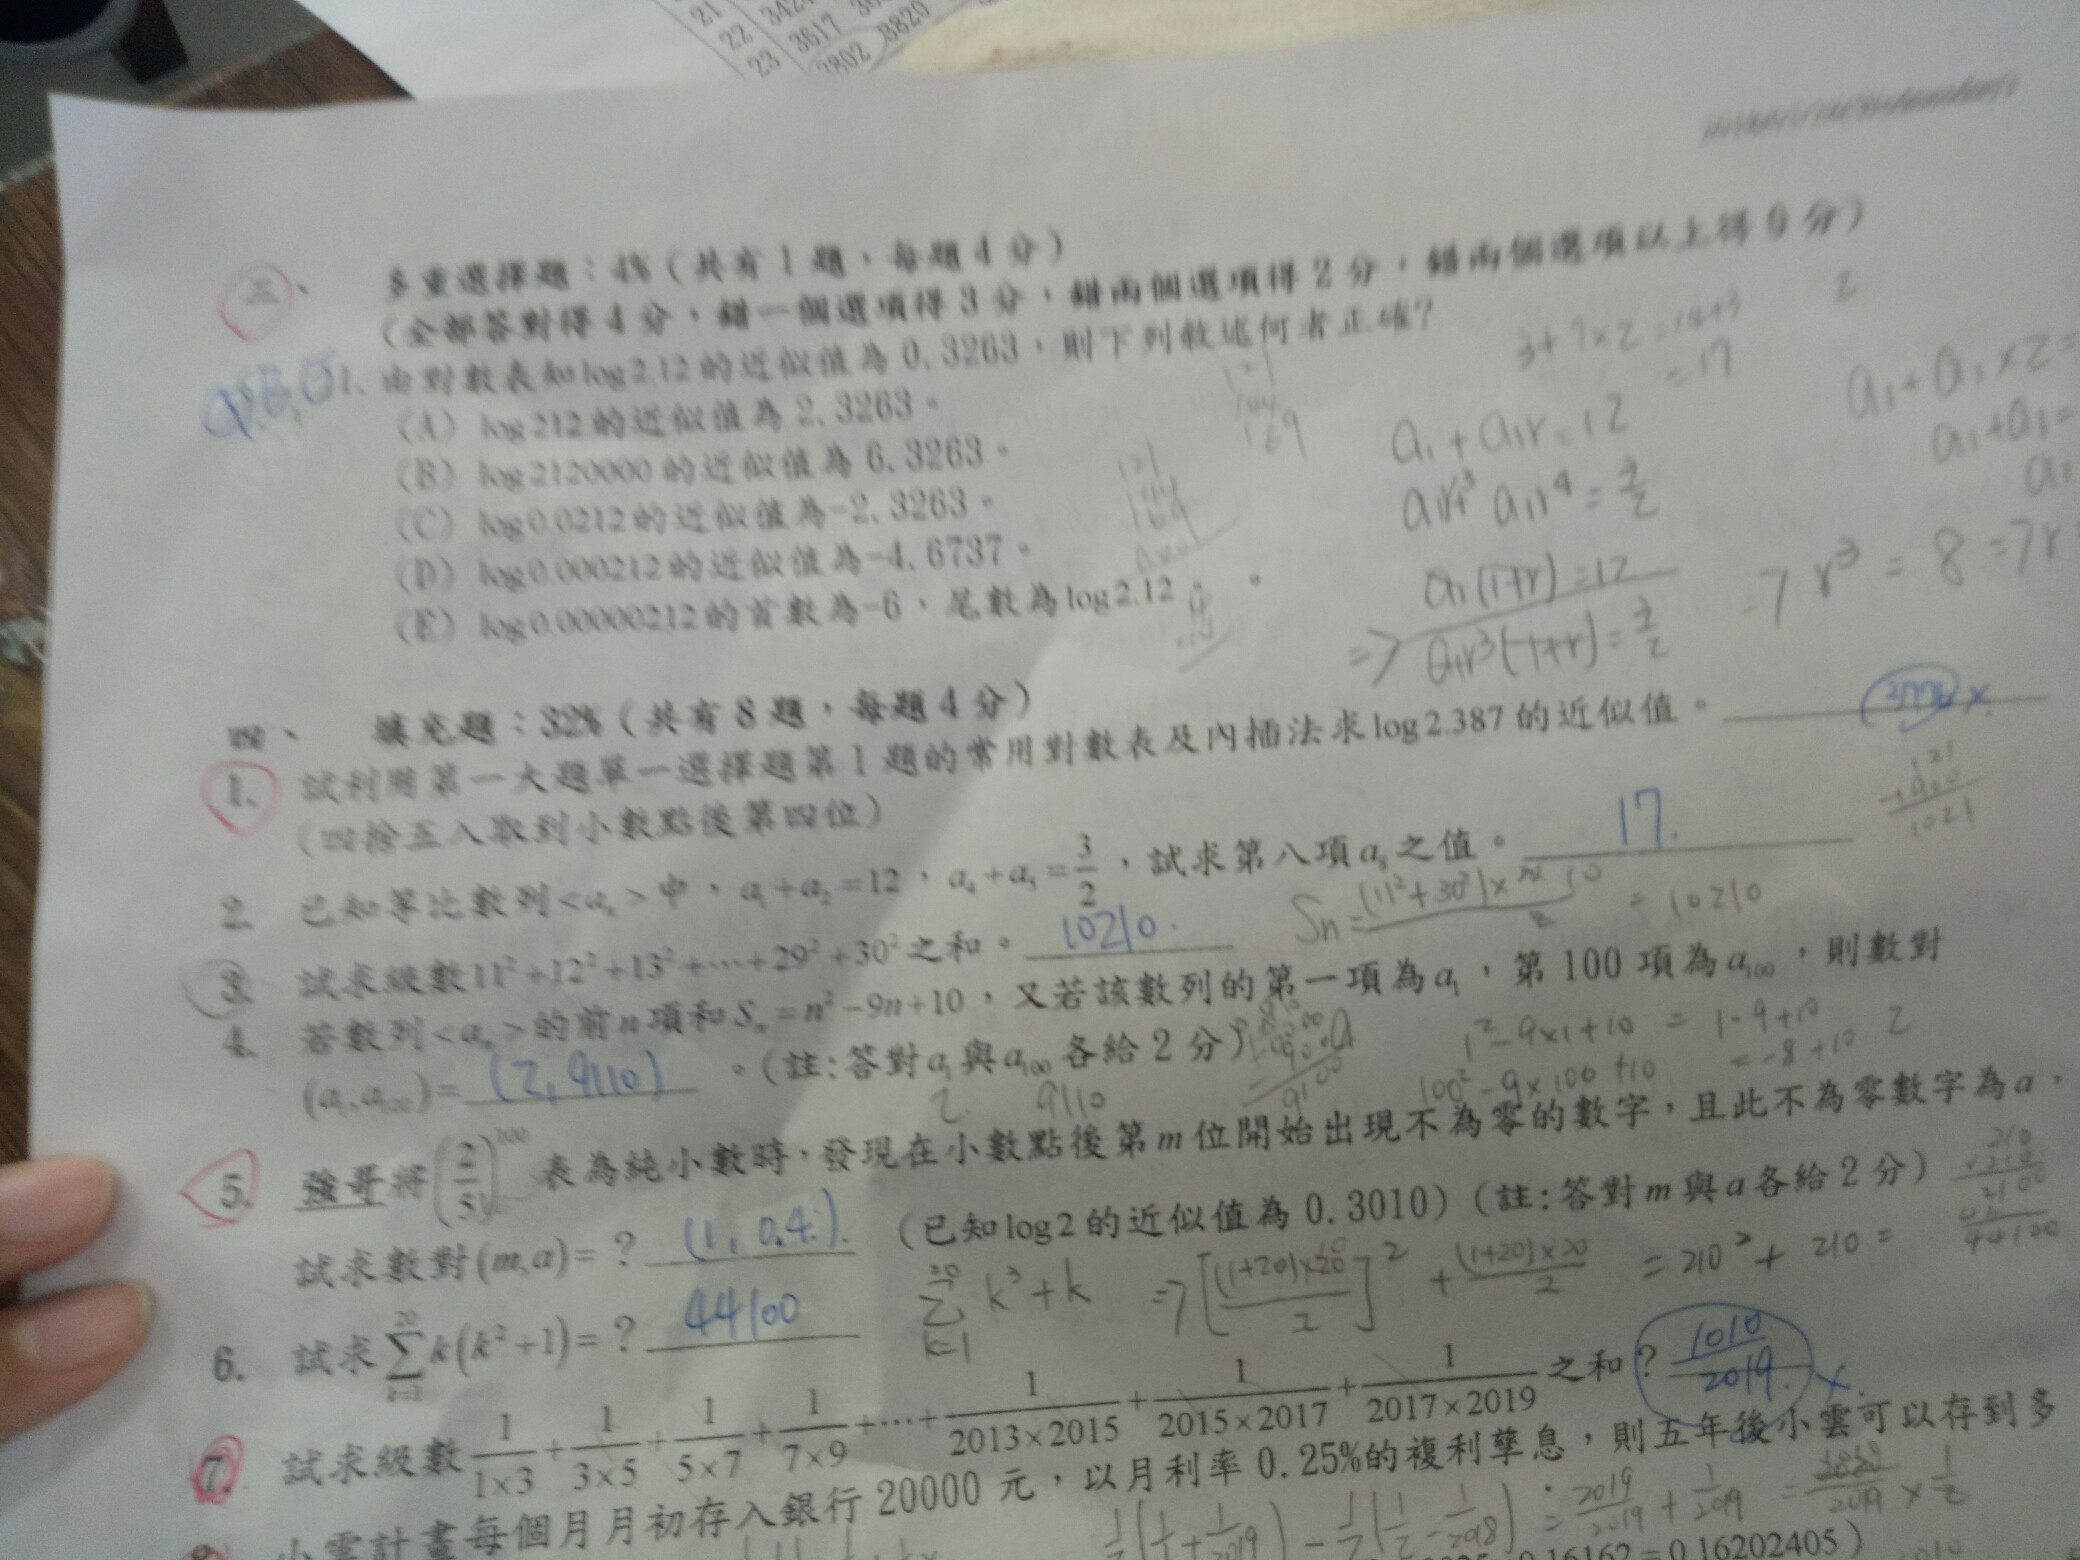 21
22 3424
23 3617
3802 3820
三、 多重選擇題：4%（共有 1 題，每題 4 分）
（全部答對得 4 分，錯一個選項得 3 分，錯兩個選項得 2 分，錯兩個選項以上得 0 分）
1. 由對數表知 log2.12 的近似值為 0.3263，則下列敘述何者正確?
（A） log212 的近似值為 2.3263。
（B） log2120000 的近似值為 6.3263。
（C） log0.0212 的近似值為-2.3263。
（D） log0.000212 的近似值為-4.6737。
（E） log0.00000212 的首數為-6，尾數為 log2.12。
3+7×2=14+3
=17
2
a₁+a₁r=12
a₁r³+a₁r⁴=3/2
a₁(1+r)=12
⇒ a₁r³(1+r)=3/2
⇒ r³ = 8 ⇒ r
a₁+a₁×2=
a₁+a₁=
a₁
四、 填充題：32%（共有 8 題，每題 4 分）
1. 試利用第一大題單一選擇題第 1 題的常用對數表及內插法求 log2.387 的近似值。
（四捨五入取到小數點後第四位）
121
+900
1021
2. 已知等比數列<aₙ>中，a₁+a₂=12，a₄+a₅=3/2，試求第八項 a₈ 之值。 17.
3. 試求級數 11²+12²+13²+⋯+29²+30² 之和。 10210.
Sn= (11²+30²)×20 10 / 2 = 10210
4. 若數列<aₙ>的前 n 項和 Sₙ=n²-9n+10，又若該數列的第一項為 a₁，第 100 項為 a₁₀₀，則數對
(a₁,a₁₀₀)= (2,9110) 。（註:答對 a₁ 與 a₁₀₀ 各給 2 分）
2 9110
1²-9×1+10 = 1-9+10
= -8+10 2
100²-9×100+10
5. 強哥將(2/5)¹⁰⁰ 表為純小數時，發現在小數點後第 m 位開始出現不為零的數字，且此不為零數字為 a，
試求數對(m,a)=？ (1, 0.4). （已知 log2 的近似值為 0.3010）（註:答對 m 與 a 各給 2 分）
210
×210
2100
44100
6. 試求 ∑k=1 20 k(k²+1)=？ 44100
20 ∑ k=1 k³+k ⇒ [(1+20)×20/2]² + (1+20)×20/2 = 210² + 210 =
7. 試求級數 1/1×3 + 1/3×5 + 1/5×7 + 1/7×9 +⋯+ 1/2013×2015 + 1/2015×2017 + 1/2017×2019 之和？ 1010/2019. ×
小雲計畫每個月月初存入銀行 20000 元，以月利率 0.25%的複利孳息，則五年後小雲可以存到多
2019/2019 + 1/2019 = /2019 × 1/2
0.16162=0.16202405）